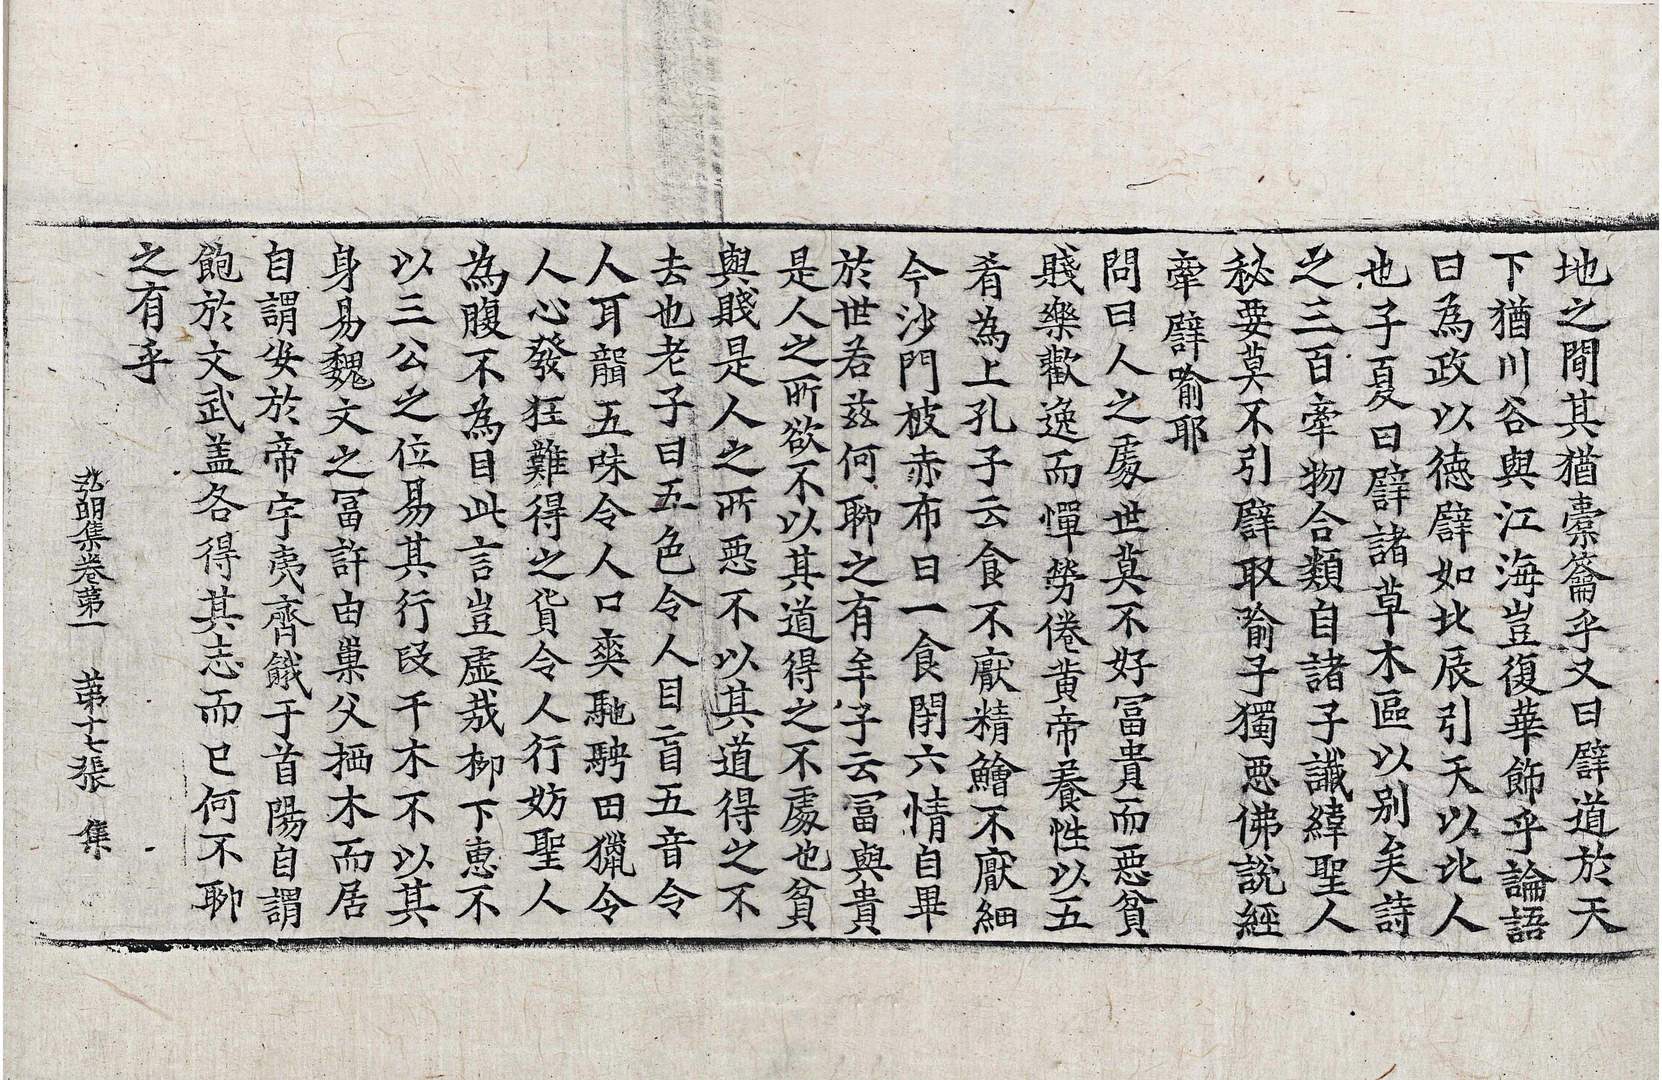 地之間其猶槖籥乎又曰譬道於天
下猶川谷與江海豈復華飾乎論語
曰為政以德譬如北辰引天以比人
也子夏曰譬諸草木區以別矣詩
之三百牽物合類自諸子讖緯聖人
秘要莫不引譬取喻子獨惡佛說經
牽譬喻耶
問曰人之處世莫不好冨貴而惡貧
賤樂歡逸而憚勞倦黃帝養性以五
肴為上孔子云食不厭精鱠不厭細
今沙門被赤布日一食閉六情自畢
於世若茲何聊之有牟子云冨與貴
是人之所欲不以其道得之不處也貧
與賤是人之所惡不以其道得之不
去也老子曰五色令人目盲五音令
人耳聾五味令人口爽馳騁田獵令
人心發狂難得之貨令人行妨聖人
為腹不為目此言豈虛哉柳下惠不
以三公之位易其行段干木不以其
身易魏文之冨許由巢父栖木而居
自謂安於帝宇夷齊餓于首陽自謂
飽於文武盖各得其志而已何不聊
之有乎
弘明集卷第一 第十七張 集